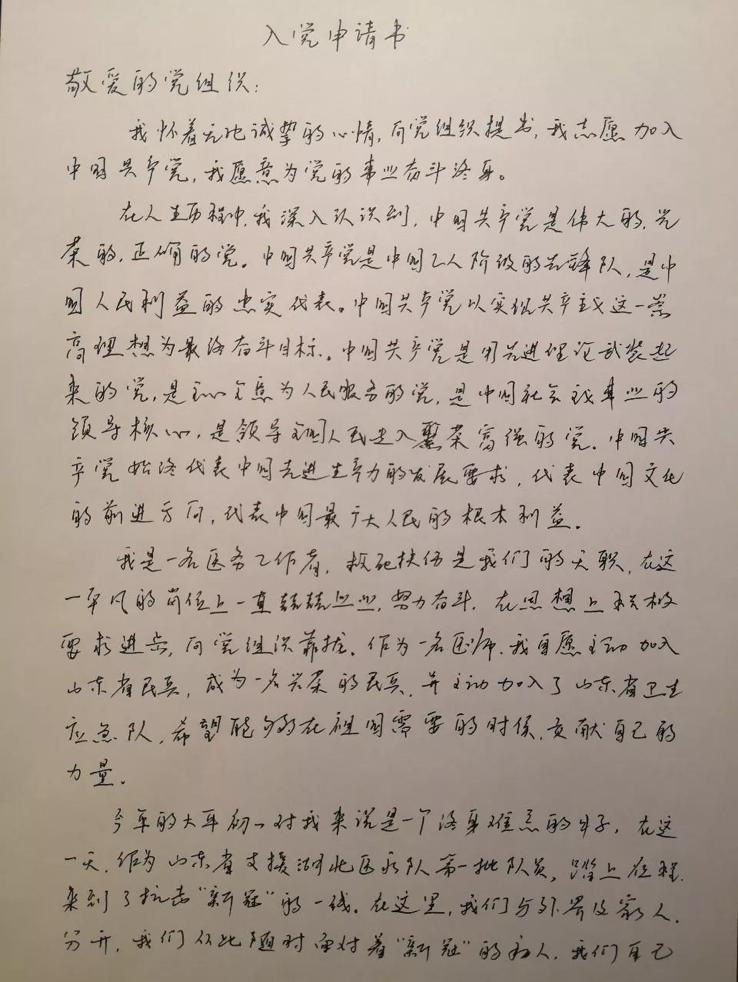 入党申请书
敬爱的党组织：
我怀着无比诚挚的心情，向党组织提出，我志愿加入
中国共产党，我愿意为党的事业奋斗终身。
在人生历程中，我深入认识到，中国共产党是伟大的，光
荣的，正确的党。中国共产党是中国工人阶级的先锋队，是中
国人民利益的忠实代表。中国共产党以实现共产主义这一崇
高理想为最终奋斗目标。中国共产党是用先进理论武装起
来的党，是全心全意为人民服务的党，是中国社会主义事业的
领导核心，是领导全国人民走入繁荣富强的党。中国共
产党始终代表中国先进生产力的发展要求，代表中国文化
的前进方向，代表中国最广大人民的根本利益。
我是一名医务工作者，救死扶伤是我们的天职，在这
一平凡的岗位上一直兢兢业业，努力奋斗，在思想上积极
要求进步，向党组织靠拢。作为一名医师，我自愿主动加入
山东省民兵，成为一名光荣的民兵，并主动加入了山东省卫生
应急队，希望能够在祖国需要的时候，贡献自己的
力量。
今年的大年初一对我来说是一个终身难忘的日子，在这
一天，作为山东省支援湖北医疗队第一批队员，踏上征程，
来到了抗击“新冠”的一线。在这里，我们与外界及家人
分开，我们从此随时面对着“新冠”的病人，我们自己